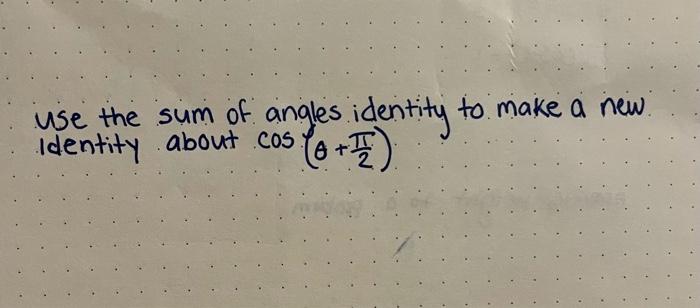 use the sum of angles identity to make a new
Identity about cos (θ + π/2)